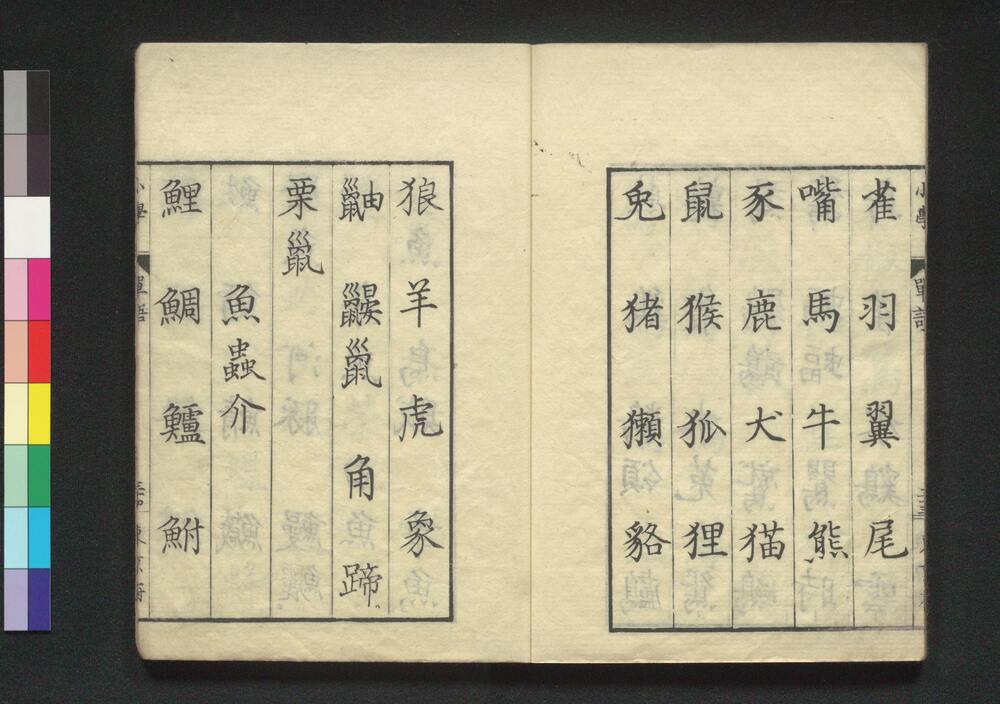 小學 單語
雀 羽 翼 尾
嘴 馬 牛 熊
豕 鹿 犬 猫
鼠 猴 狐 狸
兔 猪 獺 貉
狼 羊 虎 象
鼬 鼴鼠 角 蹄
栗鼠
魚蟲介
鯉 鯛 鱸 鮒
小學 單語